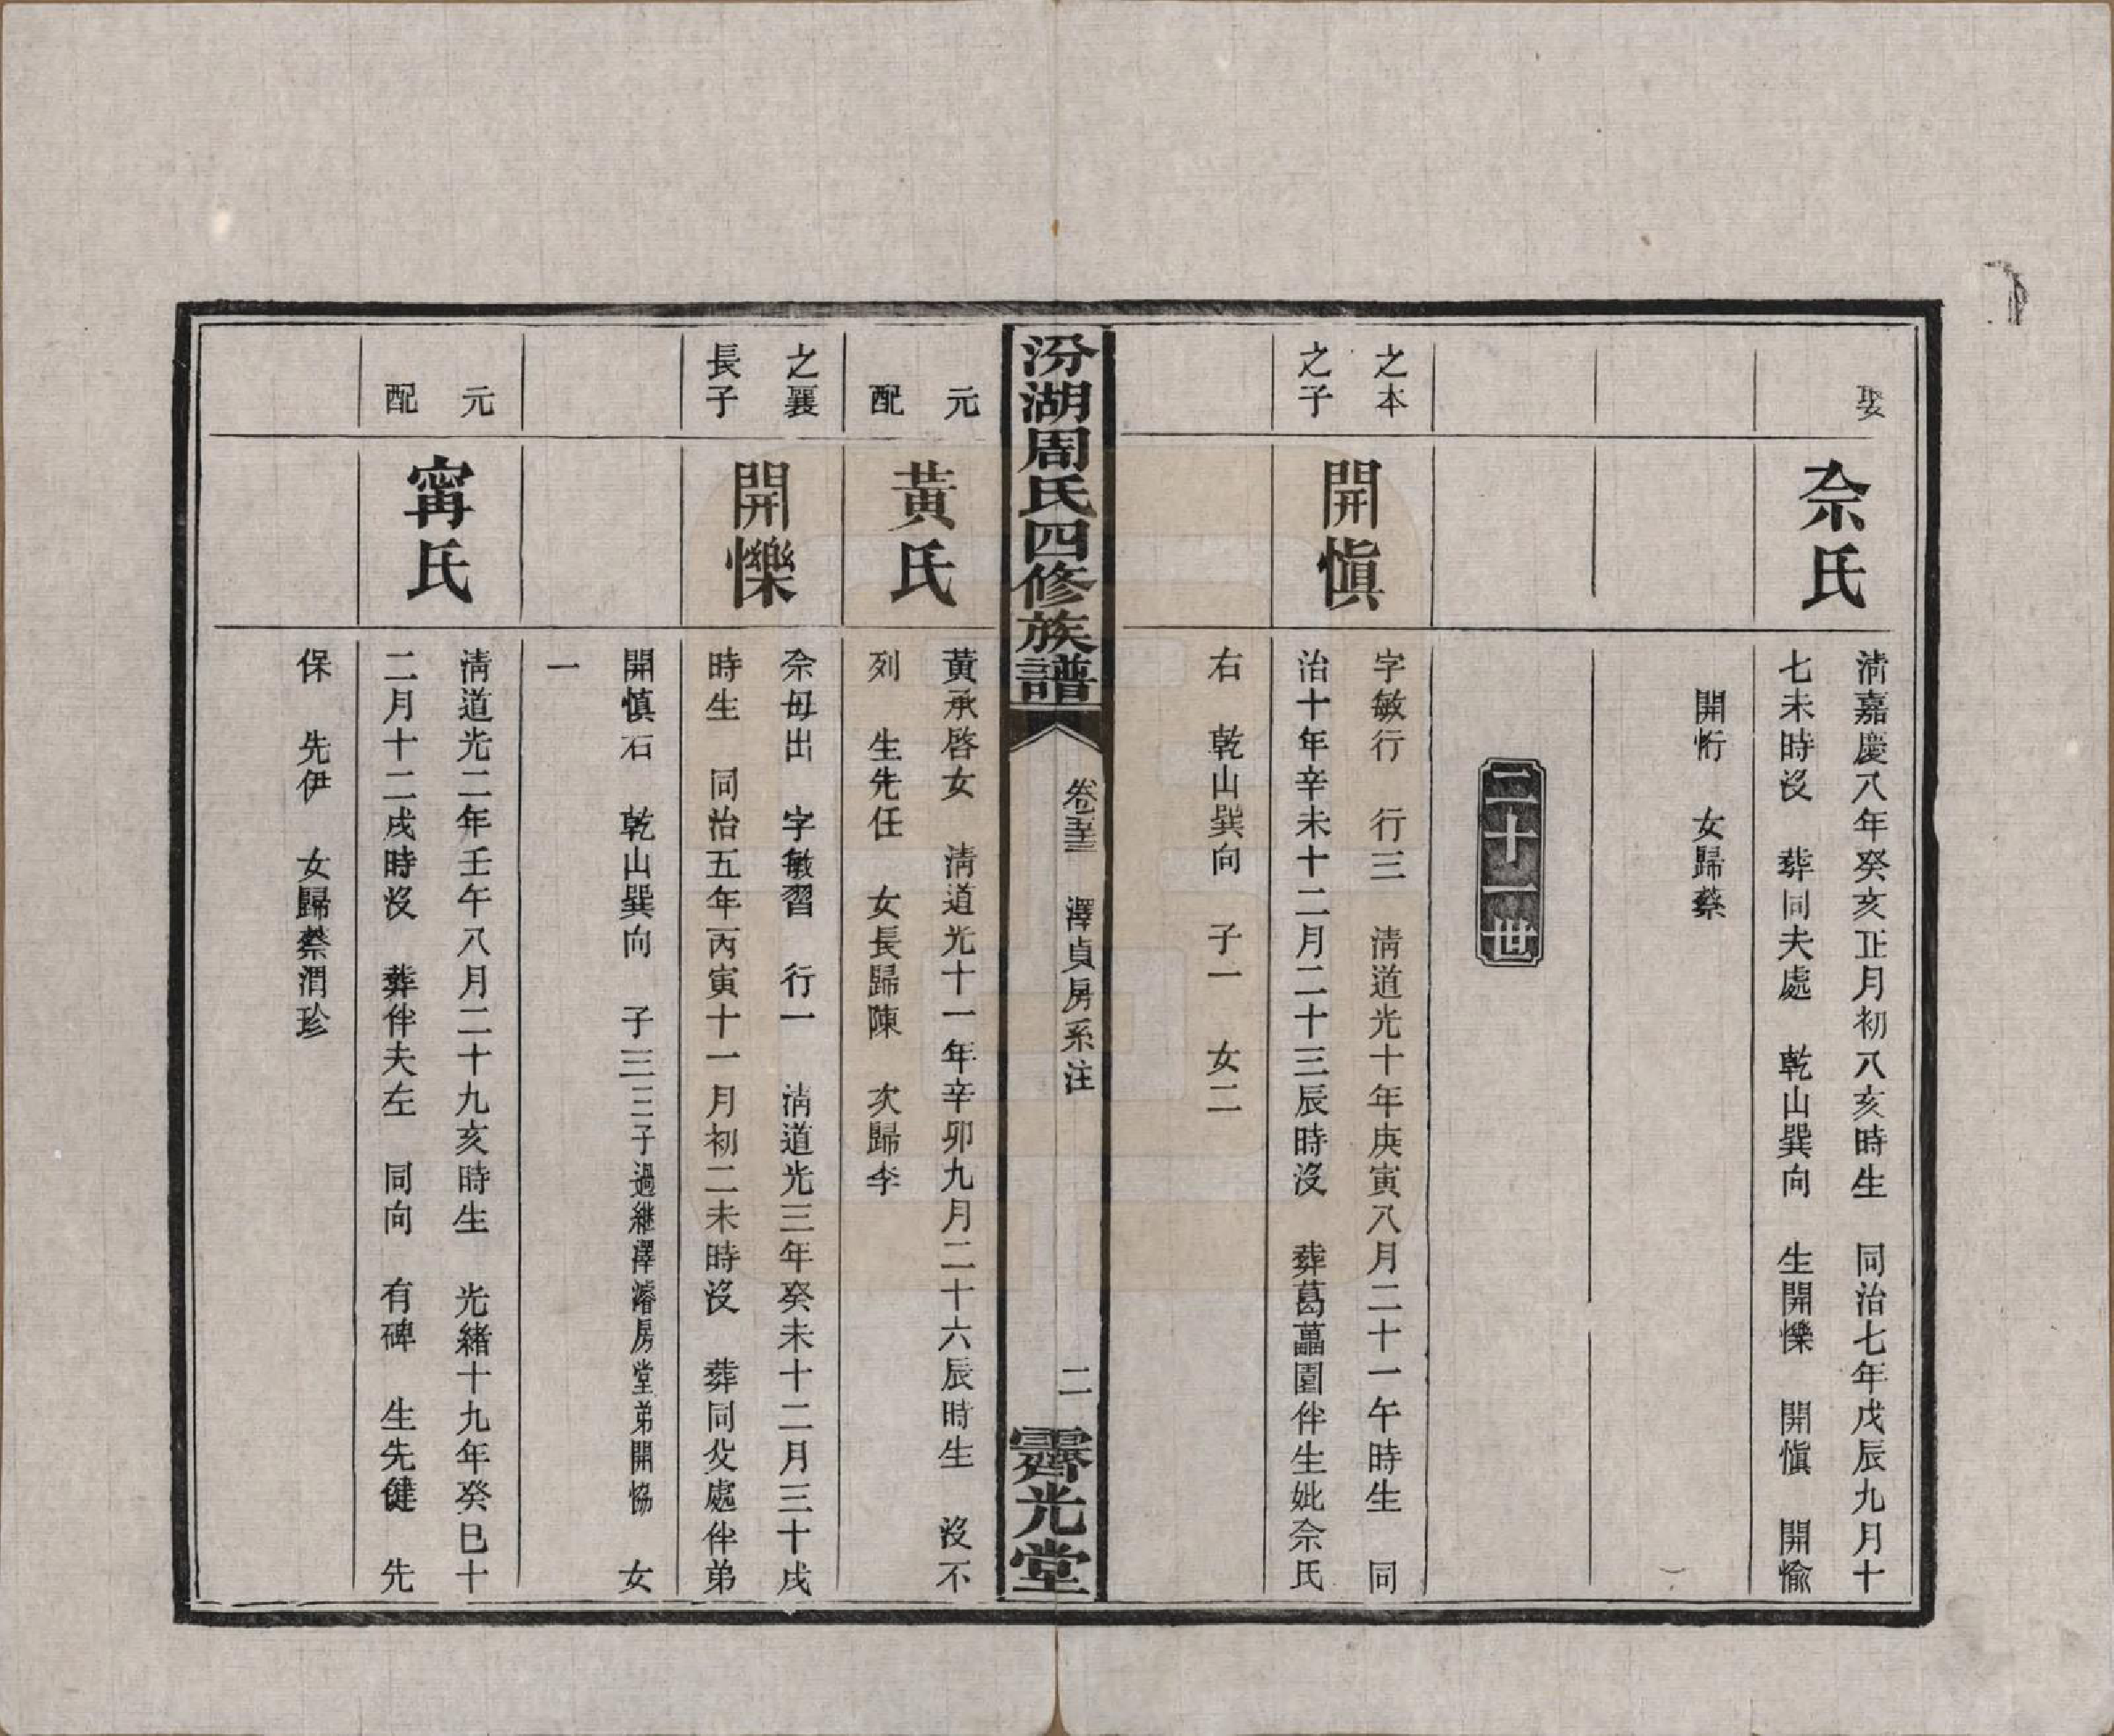 娶
佘氏
清嘉慶八年癸亥正月初八亥時生 同治七年戊辰九月十
七未時沒 葬同夫處 乾山巽向 生開㦡 開愼 開愉
開䘕 女歸蔡
二十一世
之本
之子
開愼
字敏行 行三 清道光十年庚寅八月二十一午時生 同
治十年辛未十二月二十三辰時沒 葬葛藟園伴生妣佘氏
右 乾山巽向 子一 女二
汾湖周氏四修族譜
卷三 澤貞房系注
二
霽光堂
元
配
黃氏
黃承啓女 清道光十一年辛卯九月二十六辰時生 沒不
列 生先任 女長歸陳 次歸李
之襄
長子
開㦡
佘毋出 字敏習 行一 清道光三年癸未十二月三十戌
時生 同治五年丙寅十一月初二未時沒 葬同父處伴弟
開慎右 乾山巽向 子三三子過繼澤濬房堂弟開恊 女
一
元
配
甯氏
清道光二年壬午八月二十九亥時生 光緒十九年癸巳十
二月十二戌時沒 葬伴夫左 同向 有碑 生先健 先
保 先伊 女歸蔡潤珍